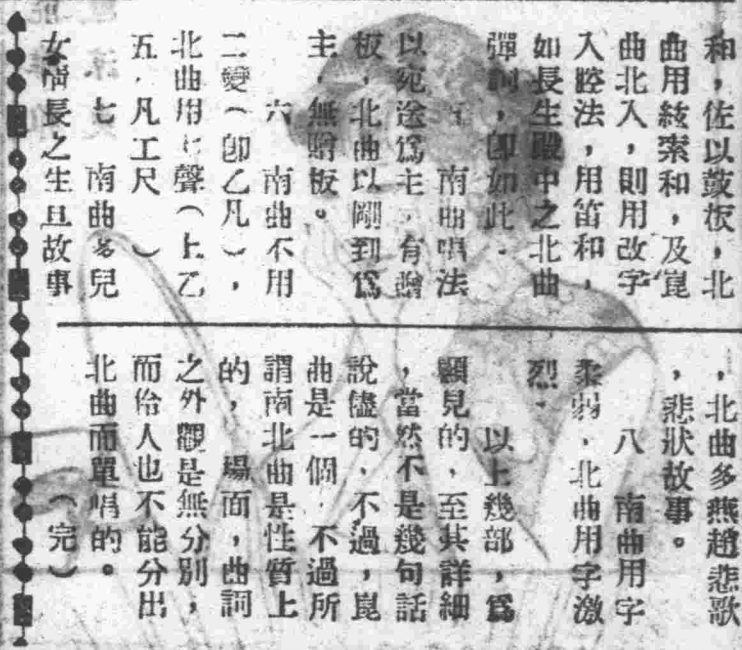 和，佐以鼓板，北
曲用絃索和，及崑
曲北入，則用改字
入腔法，用笛和，
如長生殿中之北曲
彈詞，即如此．
南曲唱法
以宛送爲主，有贈
板，北曲以剛到爲
主，無贈板。
六　南曲不用
二變（卽乙凡），
北曲用七聲（上乙
五．凡工尺　）
七　南曲多兒
女情長之生旦故事
，北曲多燕趙悲歌
，悲狀故事。
八　南曲用字
柔弱．北曲用字激
烈．
以上幾部，爲
顯見的，至其詳細
，當然不是幾句話
說儘的、不過，崑
曲是一個．不過所
謂南北曲是性質上
的，塲面，曲詞
之外觀是無分別，
而伶人也不能分出
北曲而單唱的。
（完）